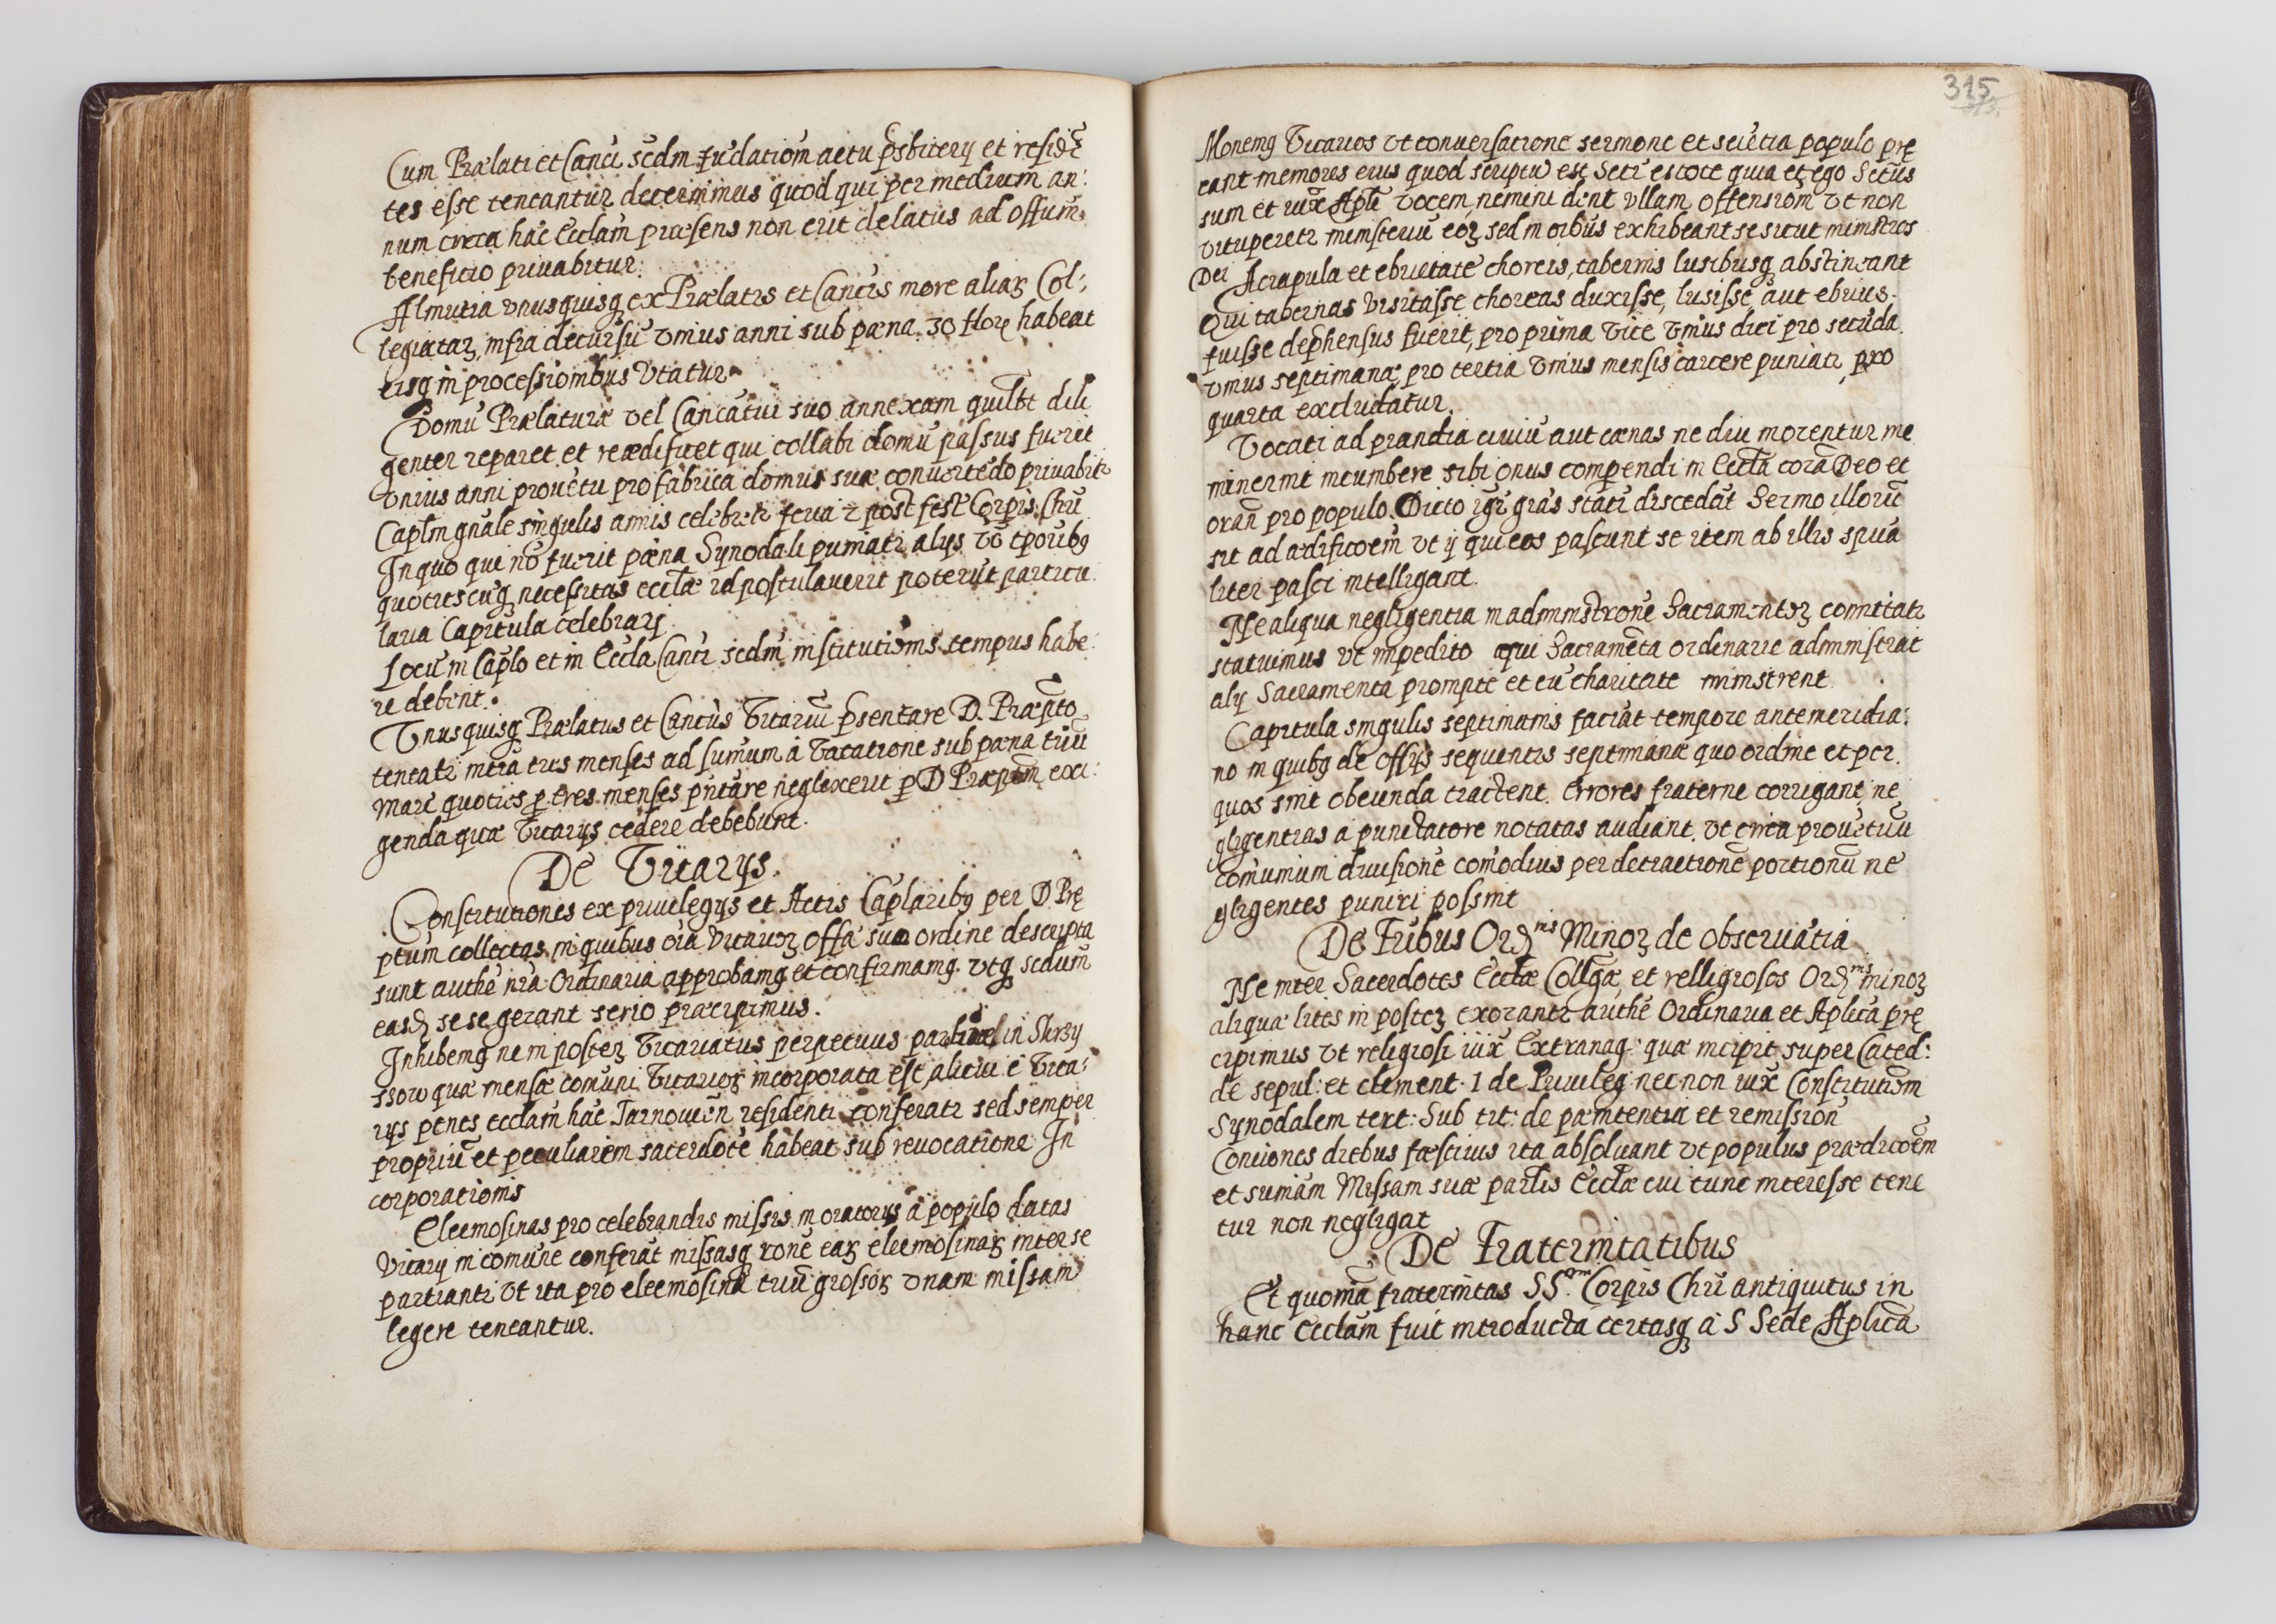 Cum Prælati et Canci sc̃dm fu̅datiom̃ actu p̃sbitery et resid̃e̅
tes esse teneantur, decernimus quod qui per medium an:
num circa hãc Ecclãm præsens non erit delatus ad Offum̃
beneficio priuabitur.
Almutia vnusquisq̨ ex Prælatis et Cancis more aliaꝝ Col:
legiataꝝ, infra decursũ vnius anni sub pæna 30 floꝝ habeat
eisq̨ in processionibus Vtatur
Domũ Prælaturæ vel Cancatui suo annexam quilbt dili
genter reparet et reædificet qui collabi domũ passus fuerit
vnius anni prouẽtu pro fabrica domus suæ conuertẽdo priuabitr
Caplm gñale singulis annis celebretr feria 2 post fest Corpis Chri
In quo qui nõ fuerit pæna Synodali puniatr alys vo tporibq
quotiescũq̨ necessitas ecclæ id postulauerit poterũt particu
laria Capitula celebrarj
Locũ in Caplo et in Eccla Canci scdm̃ institutiõnis tempus habe
re debent.
Vnusquisq̨ Prælatus et Cancus Vicariũ p̃sentare D. Præpto
teneatr intra tres menses ad sum̃um a Vacatione sub pæna triũ
Marc̃ quoties p̱ tres menses pñtare neglexerit p̱ D Præptm̃ exi:
genda quæ Vicarys cedere debebunt.
De Vicarys.
Constitutiones ex priuilegys et Actis Caplaribq per D. Prę
ptum collectas in quibus oĩa Vicarioꝝ offa suo ordine descripta
sunt authẽ nrã Ordinaria approbamq et confirmamq. vtq̨ scdum̃
easd̨ sese gerant serio præcipimus.
Inhibemq ne in posteꝝ Vicariatus perpetuus in Skrzy
ssow quæ mensæ comuni Vicarioꝝ incorporata est, alicui è Vica:
rijs penes ecclam hãc Tarnouieñ residenti conferatr sed semper
propriũ et peculiarem sacerdotẽ habeat sub reuocatione In
corporationis
Eleemosinas pro celebrandis missis in oratorys a populo datas
Vicarij in comũne conferãt missasq̨ rone eaꝝ eleemosinaꝝ inter se
partiantr vt ita pro eleemosina triũ grossoꝝ vnam missam
legere teneantur.
315
Monemq Vicarios vt conuersatione sermone et sciẽtia populo prę
eant memores eius quod scriptũ est Scti estote quia et ego Sctus
sum et iux̃ Apli vocem, nemini dent vllam offensiom̃ vt non
vituperetr ministeriũ eoꝝ sed in oibus exhibeant se sicut ministros
Dei A crapula et ebrietate choreis, tabernis lusibusq̨ abstineant
Qui tabernas visitasse choreas duxisse, lusisse aut ebrius.
fuisse dep̱hensus fuerit, pro prima vice vnius diei pro secũda
vnius septimanæ pro tertia vnius mensis carcere puniatr, pro
quarta excludatur.
Vocati ad prandia ciuiũ aut cœnas ne diu morentur me
minerint incumbere sibi onus compendi in Eccla corã Deo et
orañ pro populo. Dicto igr̃ grãs statĩ discedãt Sermo illorũ
sit ad ædificoem̃ vt ij qui eos pascunt se item ab illis spua
liter pasci intelligant.
Ne aliqua negligentia in administrone Sacramentoꝝ comittatr
statuimus vt impedito qui Sacramẽta ordinarie administrat
alij Sacramenta prompte et cũ charitate ministrent.
Capitula singulis septimanis faciãt tempore antemeridia:
no in quibq de Offijs sequentis septimanæ quo ordine et per
quos sint obeunda tractent. Errores fraterne corrigant, ne
gligentias a punctatore notatas audiant, vt circa prouẽtuũ
comũnium diuisionẽ comodius per detractionẽ portionũ ne
gligentes puniri possint
De Frĩbus Ord̨nis Minoꝝ de obseruãtia
Ne inter Sacerdotes Ecclæ Collgæ, et relligiosos Ord̨nis minoꝝ
aliquæ lites in posteꝝ exoriantr authẽ Ordinaria et Aplica prę
cipimus vt religiosi iux̃ Extrauag: quæ incipit super Cated:
de sepul: et clement. 1 de Priuileg nec non iux̃ Constitutiom̃
Synodalem text: Sub tit: de pænitentia et remission̄
Conciones diebus fæstiuis ita absoluant vt populus prædicoem̃
et sumam̃ Missam suæ parlis Ecclæ cui tunc interesse tene
tur non negligat
De Fraternitatibus
Et quoniã fraternitas SS.mi Corpis Chri antiquitus in
hanc Ecclam fuit introducta certasq̨ à S Sede Aplica